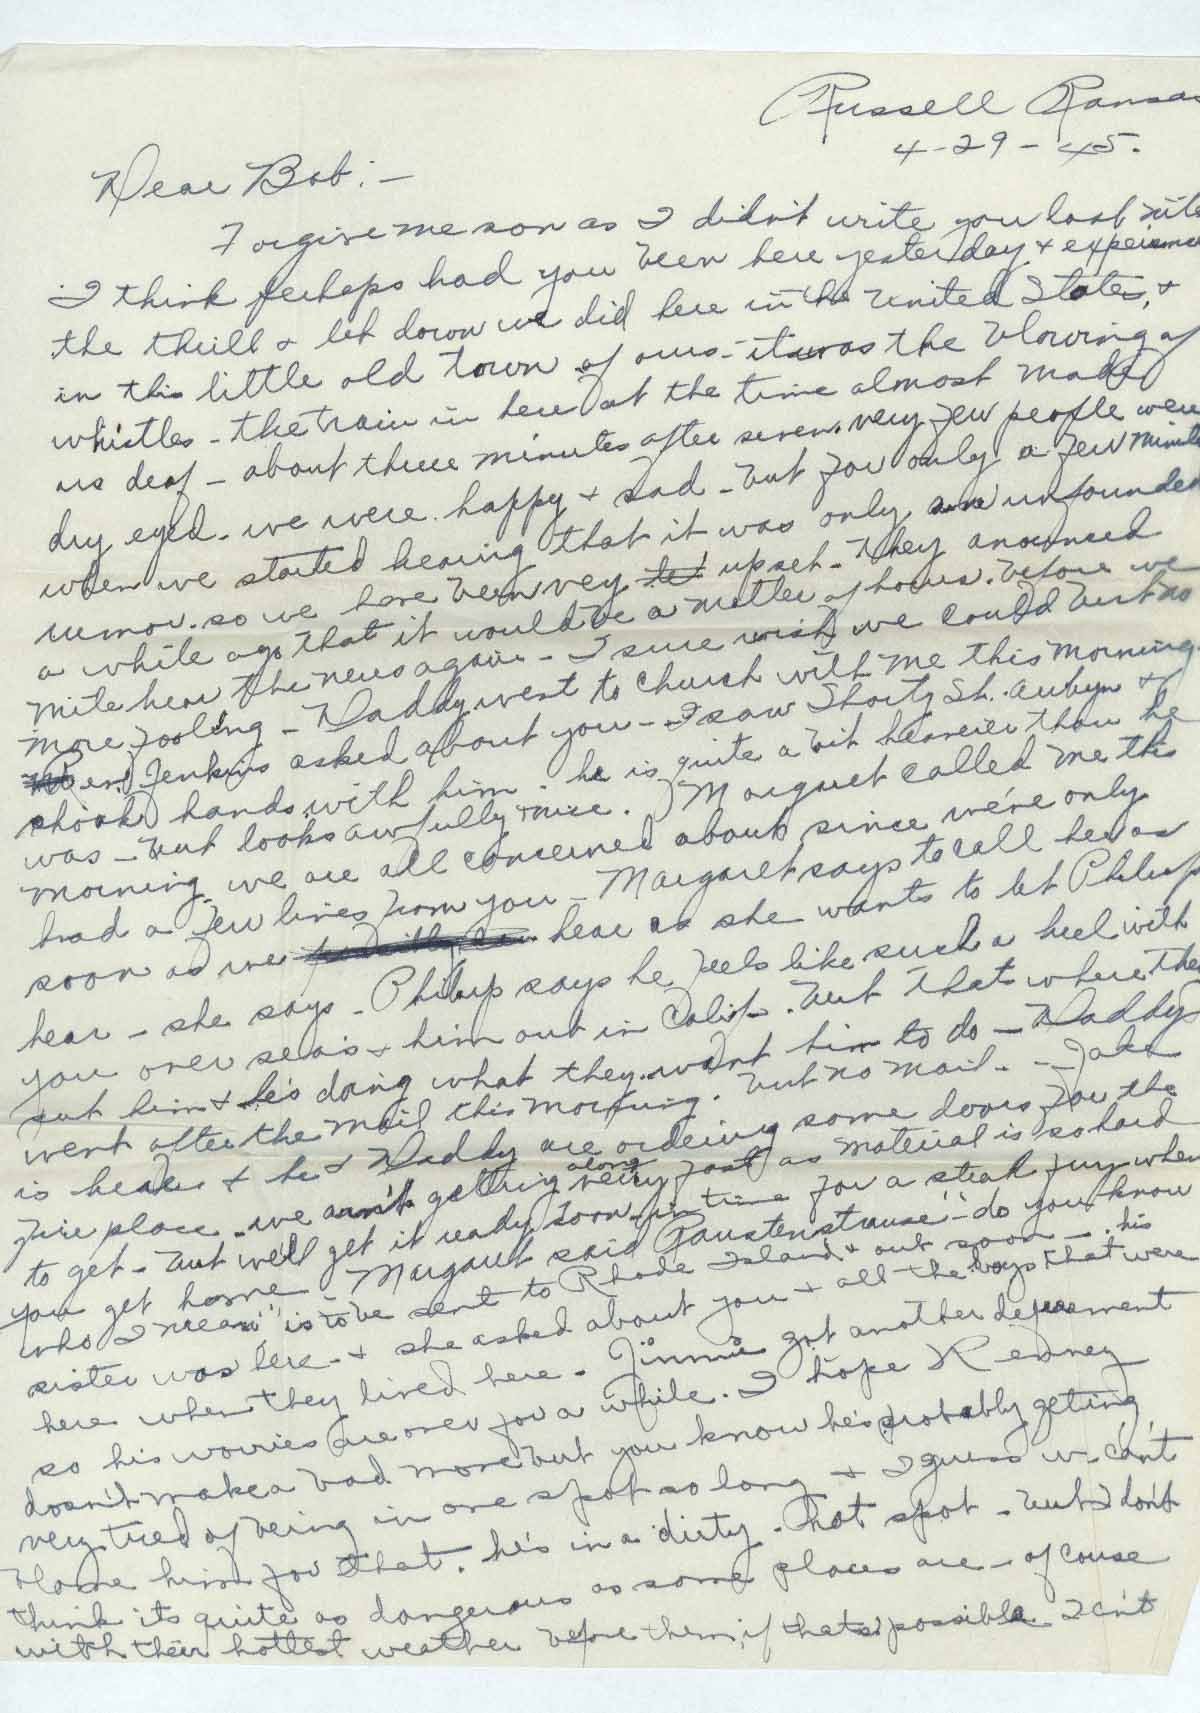 Russell Kansas
4-29-45.
Dear Bob:-
Forgive me son as I didn't write you last nite
I think perhaps had you been here yesterday & experience
the thrill & let down we did here in the United States, &
in this little old town of ours - it was the blowing of
whistles - the train in here at the time almost made
us deaf - about three minutes after seven. very few people were
dry eyed - we were happy & sad - but for only a few minutes
when we started hearing that it was only an unfounded
rumor. so we have been very upset - They anounced
a while ago that it would be a matter of hours. before we
mite hear the news again - I sure wish we could but no
more fooling - Daddy went to church with me this morning.
Rev. Jenkins asked about you - I saw Shorty St. Aubyn &
shook hands with him. he is quite a bit heavier than he
was - but looks awfully nice. Margaret called me this
morning we are all concerned about since we're only
had a few lines from you - Margaret says to call her as
soon as we hear as she wants to let Philip
hear - she says - Philip says he feels like such a heel with
you over seas & him out in Calif. - but thats where they
put him & he's doing what they want him to do - Daddy
went after the mail this morning. but no mail. - Jake
is here & he & Daddy are ordering some doors for the
fire place - we arn't getting along very fast as material is so hard
to get - but we'll get it ready soon in time for a steak fry when
you get home - Margaret said "do you know
who I mean" is to be sent to Rhode Island & out soon - his
sister was here - & she asked about you & all the boys that were
here when they lived here. Jimmie got another deferment
so his worries are over for a while. I hope Kenney
dosn't make a bad move but you know he's probably getting
very tired of being in one spot so long & I guess we can't
blame him for that. he's in a dirty - hot spot - but I don't
think its quite as dangerous as some places are - of couse
with their hottest weather before them, if thats possible I can't